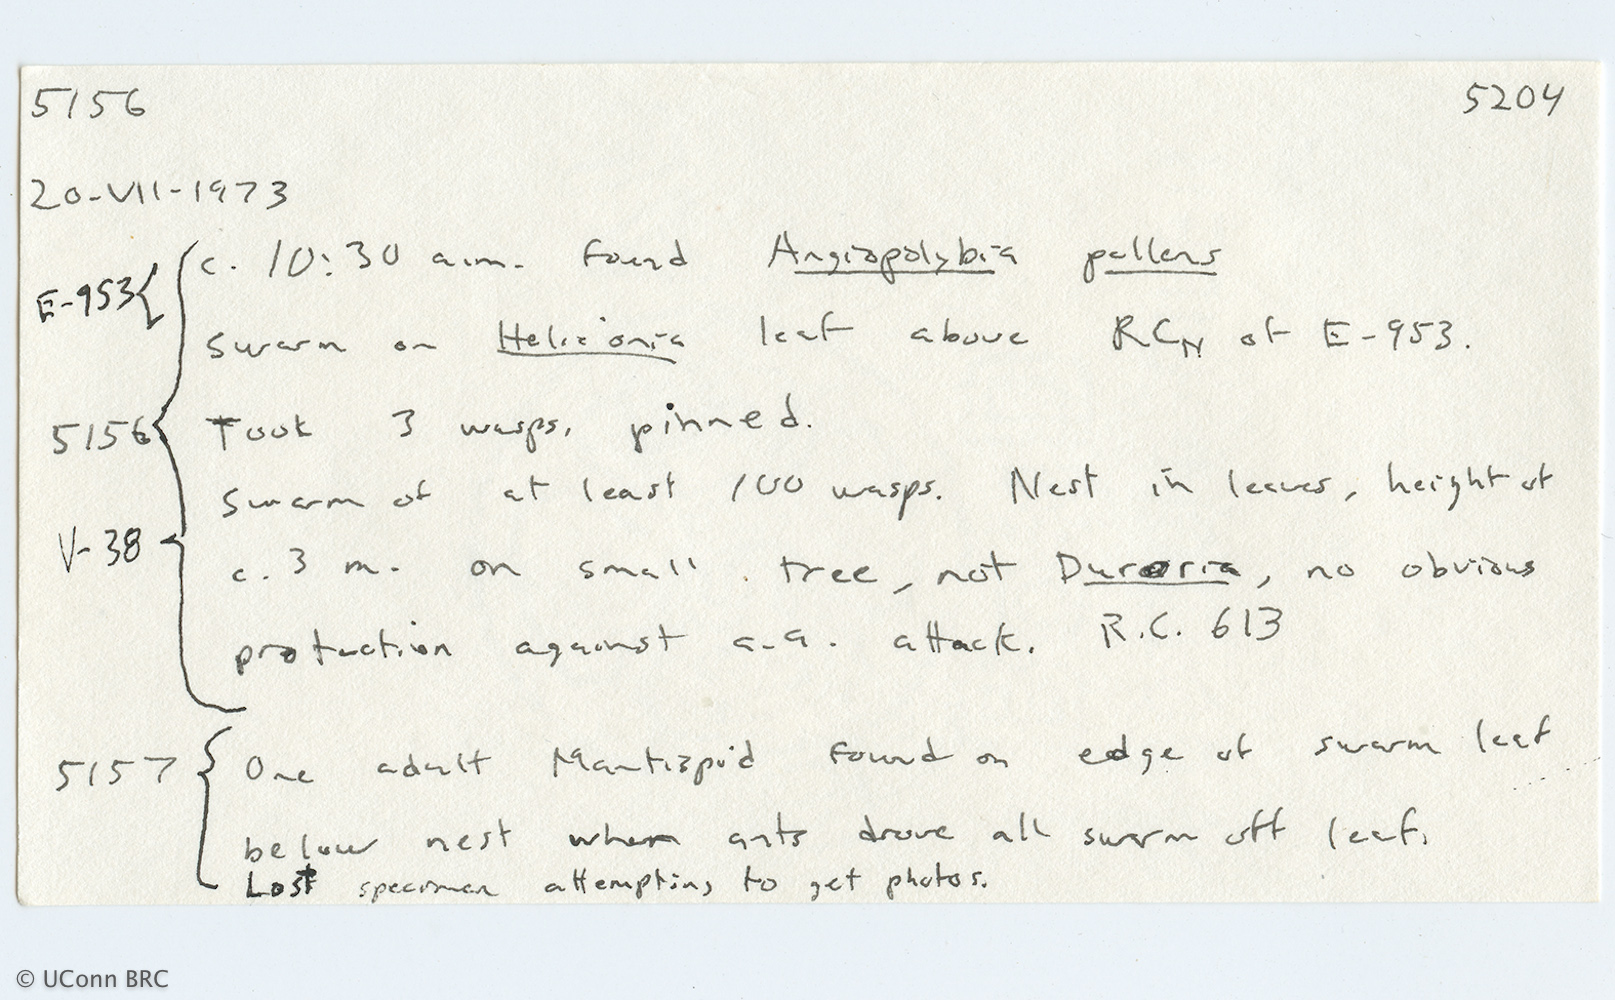 5156 5204
20-VII-1973
c. 10:30 a.m. Found Angiopolybia pallens
E-953
swarm on Heliconia leaf above RCN of E-953.
5156 Took 3 wasps, pinned.
Swarm of at least 100 wasps. Nest in leaves, height of
V-38
c. 3 m. on small tree, not Duroria, no obvious
protection against a.a. attack. R.C. 613
5157 One adult Mantispid found on edge of swarm leaf
below nest when ants drove all swarm off leaf.
Lost specimen attempting to get photos.
© UConn BRC